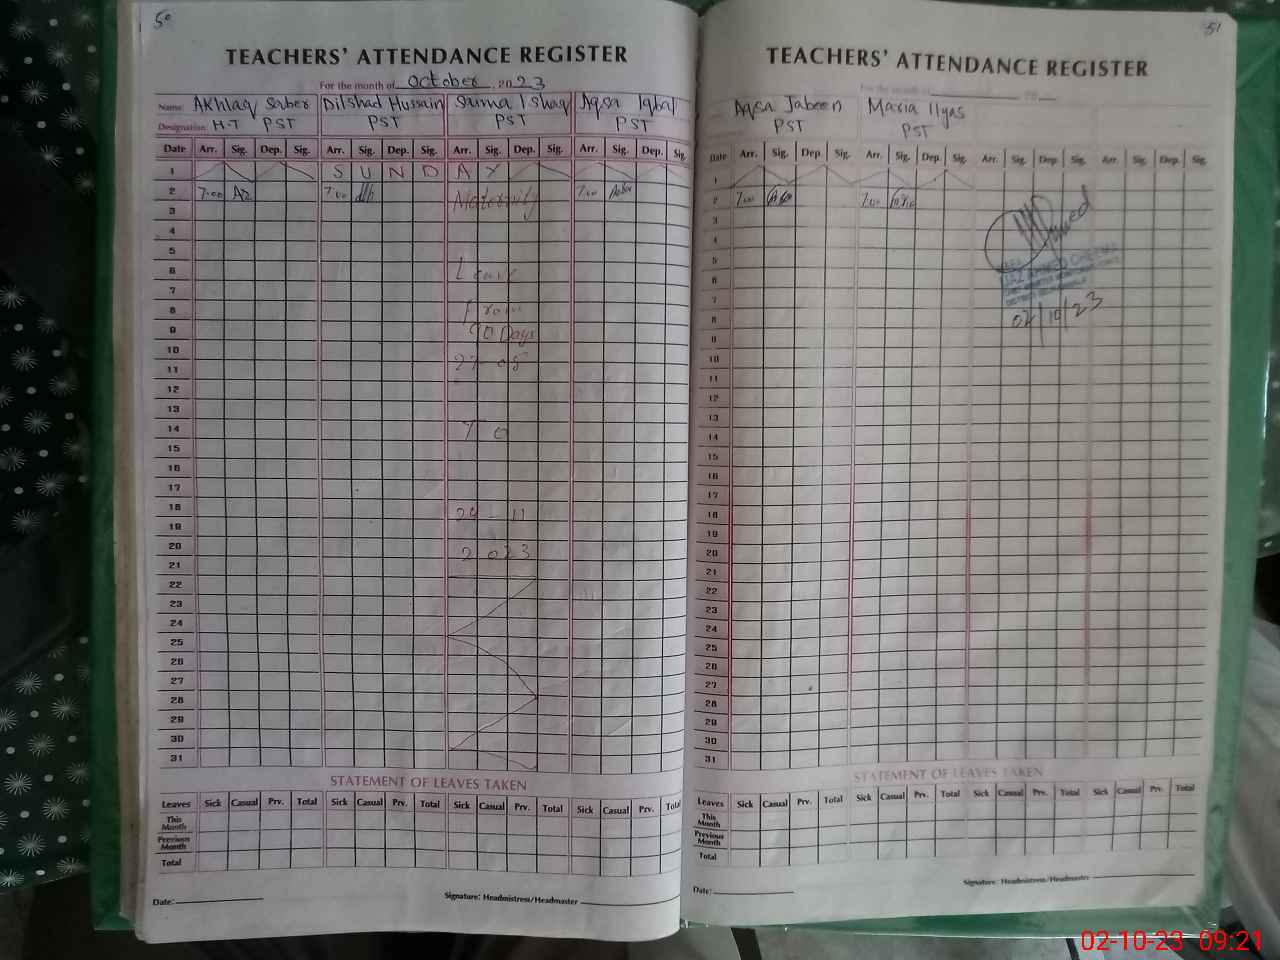 50
TEACHERS' ATTENDANCE REGISTER
For the month of October, 2023
Name: Akhlaq Saber Dilshad Hussain Saima Ishaq Aqsa Iqbal
Designation: H-T PST PST PST PST
Date Arr. Sig. Dep. Sig. Arr. Sig. Dep. Sig. Arr. Sig. Dep. Sig. Arr. Sig. Dep. Sig.
1 S U N D A Y
2 7:00 7:00 Maternity 7:00
3
4
5
6 Leave
7
8 From
9 90 Days
10
11 27-05
12
13
14 To
15
16
17
18 24-11
19
20 2023
21
22
23
24
25
26
27
28
29
30
31
STATEMENT OF LEAVES TAKEN
Leaves Sick Casual Prv. Total Sick Casual Prv. Total Sick Casual Prv. Total Sick Casual Prv. Total
This Month
Previous Month
Total
Date: Signature: Headmistress/Headmaster
51
TEACHERS' ATTENDANCE REGISTER
For the month of
Aqsa Jabeen Maria Ilyas
PST PST
Date Arr. Sig. Dep. Sig. Arr. Sig. Dep. Sig. Arr. Sig. Dep. Sig. Arr. Sig. Dep. Sig.
1
2 7:00 7:00
3
4
5
6
7
8 02/10/23
9
10
11
12
13
14
15
16
17
18
19
20
21
22
23
24
25
26
27
28
29
30
31
STATEMENT OF LEAVES TAKEN
Leaves Sick Casual Prv. Total Sick Casual Prv. Total Sick Casual Prv. Total Sick Casual Prv. Total
This Month
Previous Month
Total
Date: Signature: Headmistress/Headmaster
02-10-23 09:21